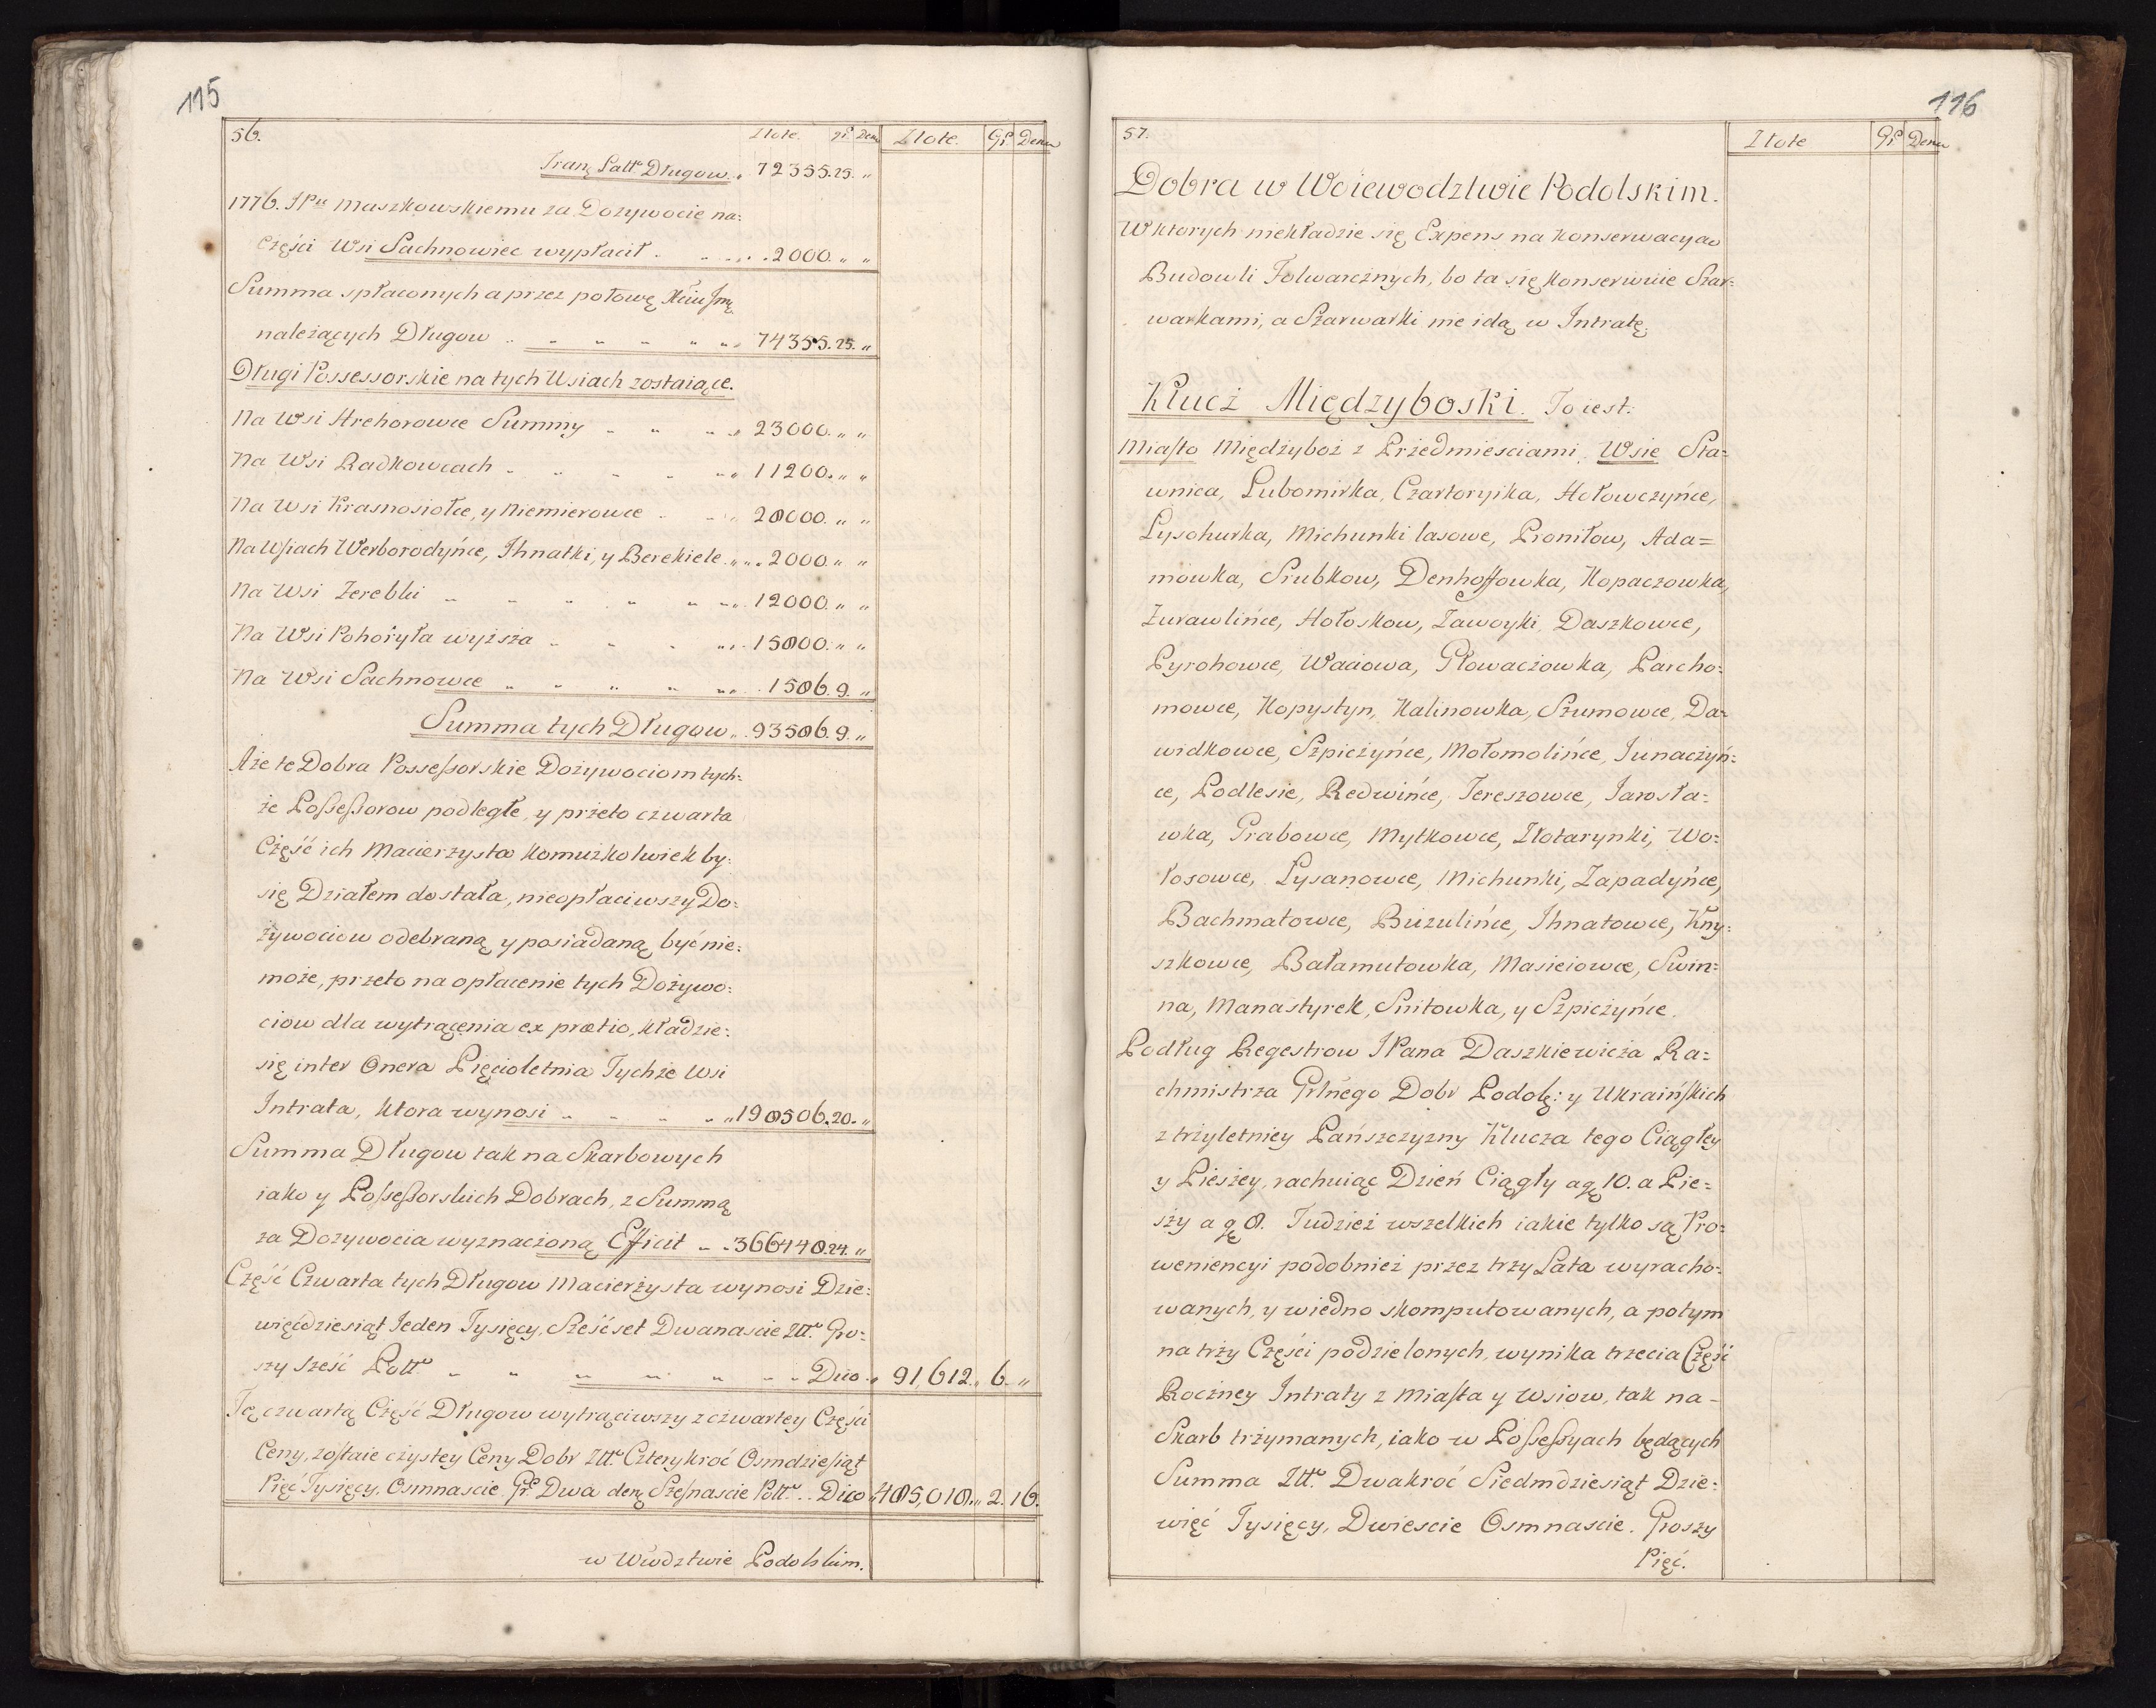 115
56. Złote. gr. Den. Złote. Gr. Denar
Długow. „ 72355.25. „
1776. JPu Maszkowskiemu za Dozywocie na:
Części Wsi Sachnowiec wypłacił . . . . 2000. „ „
Summa spłaconych a przez połowę
należących Długow . . . . . 74355.25. „
Długi Possessorskie na tych Wsiach zostaiące.
Na Wsi Hrehorowce Summy . . . 23000. „ „
Na Wsi Radkowcach . . . . 11200. „ „
Na Wsi Krasnosiołce, y Niemierowce . . . 28000. „ „
Na Wsiach Werborodyńce, Ihnatki, y Berekiele „ „ 2000. „ „
Na Wsi Zerebki . . . . . 12000. „ „
Na Wsi Pohoryła wyższa . . . . 15800. „ „
Na Wsi Sachnowce . . . . . 1506. 9. „
Summa tych Długow „ 93506. 9. „
Aże te Dobra Possessorskie Dożywociom tych:
że Possessorow podległe, y przeto czwarta
Część ich Macierzysta komużkolwiek by:
się Działem dostała, nieopłaciwszy Do:
żywociow odebraną y posiadaną być nie:
może, przeto na opłacenie tych Dożywo:
ciow dla wytrącenia ex prætio, kładzie:
się inter Onera Pięcioletnia Tychże Wsi
Intrata, ktora wynosi . . . . „ 198506.20. „
Summa Długow tak na Skarbowych
iako y Possessorskich Dobrach, z Summą
za Dozywocia wyznaczoną Efficit . . 366448.24. „
Część Czwarta tych Długow Macierzysta wynosi Dzie:
więćdziesiąt Jeden Tysięcy, Sześćset Dwanascie Złł. Gro:
szy Sześć Poll. . . . . . . Dico. „ 91,612. „ 6. „
Tę czwartą Część Długow wytrąciwszy z czwartey Części
Ceny, zostaie czystey Ceny Dobr Złł. Czterykroć Osmdziesiąt
Pięć Tysięcy, Osmnascie Gr. Dwa den Szesnascie Poll. . . Dico „ 485,018. „ 2. 16.
w Wwdztwie Podolskim.
116
57. Złote Gr Denar
Dobra w Woiewodztwie Podolskim.
W ktorych niekładzie się Expens na konserwacyą
Budowli Folwarcznych, bo ta się konserwuie Szar:
warkami, a Szarwarki nie idą w Intratę.
Klucz Międzyboski. To iest:
Miasto Międzyboż z Przedmiesciami. Wsie Sta:
wnica, Lubomirka, Czartoryika, Hołowczyńce,
Łysohurka, Michunki lasowe, Proniłow, Ada=
mowka, Srubkow, Denhoffowka, Kopaczowka,
Zurawlińce, Hołoskow, Zawoyki, Daszkowce,
Pyrohowce, Waciowa, Głowaczowka, Parcho:
mowce, Kopystyn, Kalinowka, Szumowce, Da:
widkowce, Szpiczyńce, Mołomolińce, Junaczyń:
ce, Podlesie, Redwińce, Tereszowce, Jarosła:
wka, Grabowce, Mytkowce, Złotarynki, Wo:
łosowce, Łysanowce, Michunki, Zapadyńce,
Bachmatowce, Buzulińce, Ihnatowce, Kny:
szkowce, Bałamutowka, Masieiowce, Swin:
na, Manastyrek, Snitowka, y Szpiczyńce.
Podług Regestrow JPana Daszkiewicza Ra:
chmistrza Grlnego Dobr Podol: y Ukraińskich
z trzyletniey Pańszczyzny Klucza tego Ciągłey
y Pieszey, rachuiąc Dzień Ciągły a g. 10. a Pie:
szy a g. 8. Tudzież wszelkich iakie tylko są Pro:
weniencyi podobnież przez trzy Lata wyracho:
wanych, y wiedno skomputowanych, a potym
na trzy Części podzielonych, wynika trzecia Część
Roczney Intraty z Miasta y Wsiow, tak na –
Skarb trzymanych, iako w Possessyach będących
Summa Złł. Dwakroć Siedmdziesiąt Dzie:
więć Tysięcy, Dwiescie Osmnascie. Groszy
Pięć.